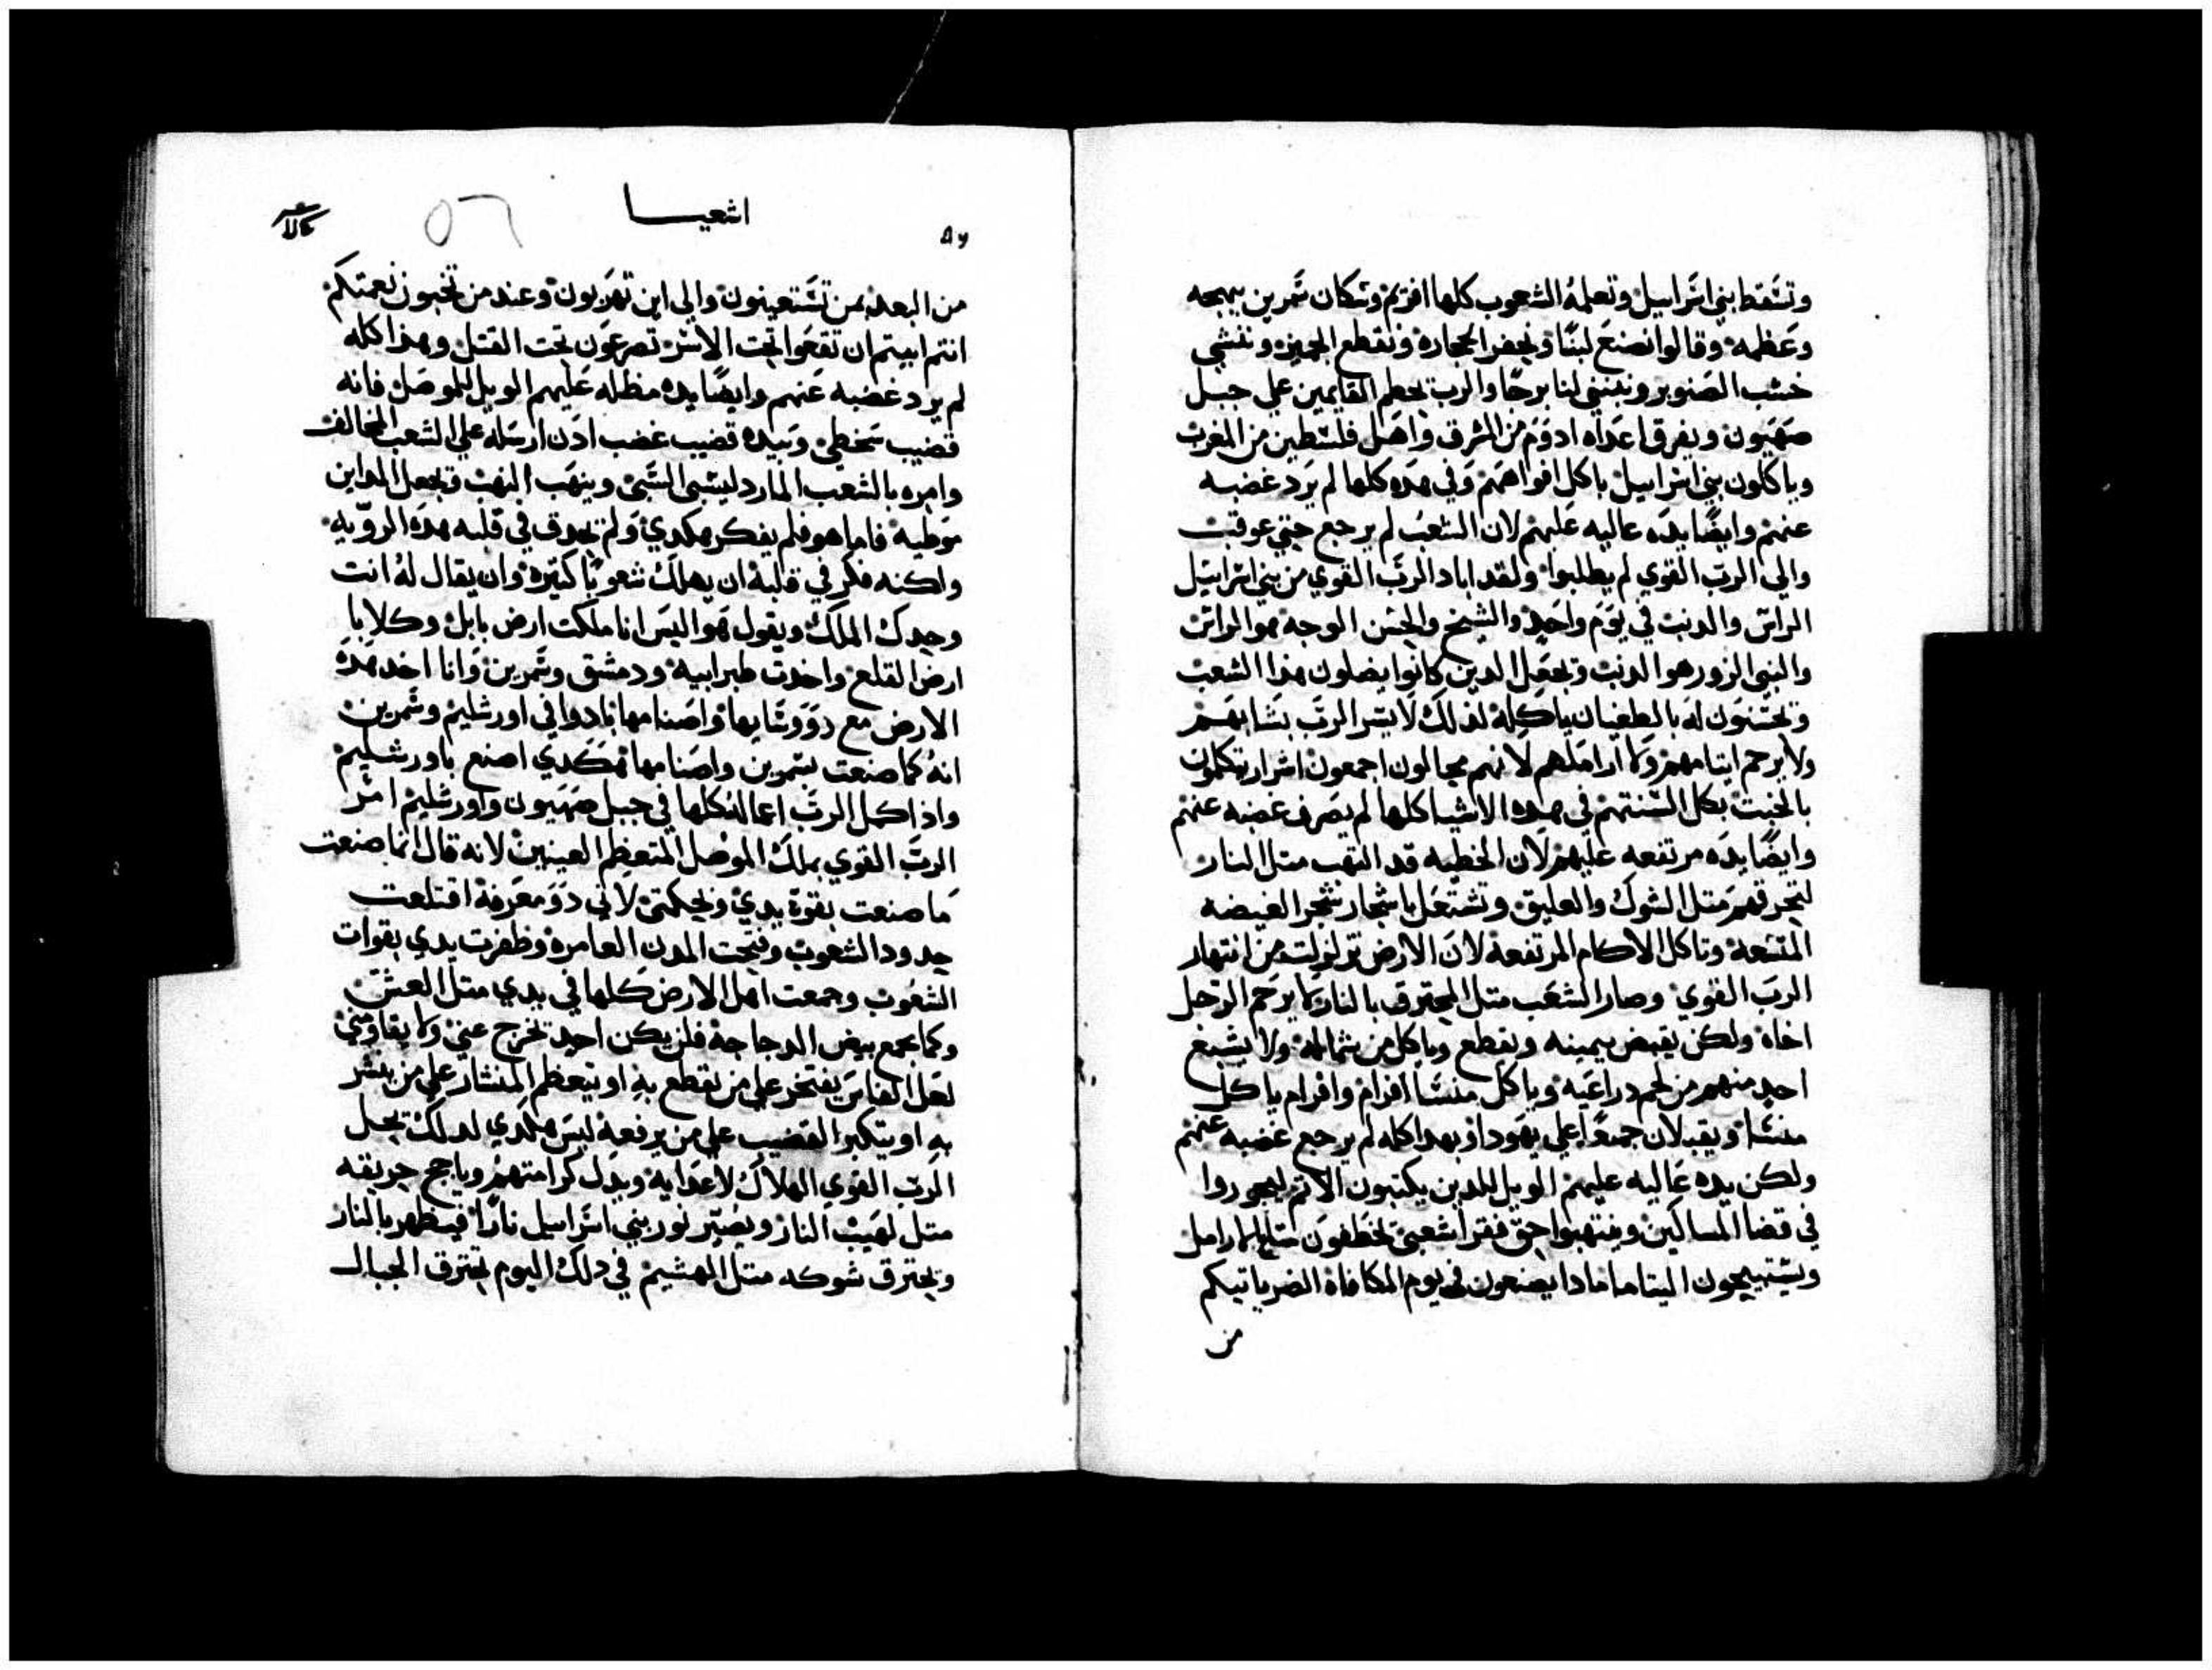 وتسقط بني اسراييل وتعلمه الشعوب كلها افريم وسكان سمرين ببهجه
وعظمه وقالوا نصنع لبنا ونحفر الحجاره ونقطع الجميز وننشي
خشب الصنوبر ونبتني لنا برحا والرب يحطم القايمين علي جبل
صهيون ويفرق اعداه ادوم من الشرق واهل فلسطين من المغرب
وياكلون بني اسراييل باكل افواههم وفي هده كلها لم يرد غضبه
عنهم وايضا يده عاليه عليهم لان الشعب لم يرجع حتي عوقب
والي الرب القوي لم يطلبوا ولقد اباد الرب القوي من بني اسراييل
الراس والدنب في يوم واحد والشيخ والحسن الوجه هو الراس
والنبي الزور هو الدنب وتجعل الدين كانوا يضلون هدا الشعب
ويحسنون له بالطغيان ياكله لدلك لا يسر الرب بشابهم
ولا يرحم ايتامهم ولا اراملهم لانهم محالون اجمعون اشرار يتكلمون
بالخبت بكل السنتهم في هده الاشيا كلها لم يصرف غضبه عنهم
وايضا يده مرتفعه عليهم لان الخطيه قد التهب متل النار
لتحرقهم متل الشوك والعليق وتشتعل باشجار شجر الغيضه
الملتفه وتاكل الاكام المرتفعه لان الارض تزلزلت من انتهار
الرب القوي وصار الشعب متل المحترق بالنار لا يرحم الرجل
اخاه ولكن يقبض بيمينه ويقطع وياكل من شماله ولا يشبع
احد منهم من لحم دراعيه وياكل منسا افرام وافرام ياكل
منسا ويقبلان جمعا علي يهودا وبهدا كله لم يرجع غضبه عنهم
ولكن يده عاليه عليهم الويل للدين يكتبون الاتم ليجوروا
في قضا المساكين وينتهبوا حق فقرا شعبي يخطفون متاع الارامل
ويستبيحون اليتاما مادا يصنعون في يوم المكافاه الضر ياتيكم
من
اشعيا
٥٦
من البعد بمن تستعينون والي اين تهربون وعند من تخبون نعمتكم
انتم ابيتم ان تقعوا تحت الاسر تصرعون تحت القتل وبهدا كله
لم يرد غضبه عنهم وايضا يده مظله عليهم الويل للموصل فانه
قضيب سخطي وبيده قضيب غضب ادن ارسله علي الشعب المخالف
وامره بالشعب المارد ليسبي السبي وينهب النهب وتجعل المداين
موطيه فاما هو فلم يفكر هكدي ولم يحدق في قلبه هده الرويه
ولكنه فكر في قلبه ان يهلك شعوبا كتيره وان يقال له انت
وحدك الملك ويقول هو اليس انا ملكت ارض بابل وكلايا
ارض القلع واخدت طبراييه ودمشق وسمرين وانا اخد هده
الارض مع اصنامها نادوا في اورشليم وسمرين
انه كما صنعت بسمرين واصنامها هكدي اصنع باورشليم
وادا كمل الرب اعماله كلها في جبل صهيون واورشليم امر
الرب القوي بملك الموصل المتعظم العينين لانه قال انما صنعت
ما صنعت بقوة يدي وبحكمتي لاني دو معرفه اقتلعت
حدود الشعوب وفتحت المدن العامره وظفرت يدي بقوات
الشعوب وجمعت اهل الارض كلها في يدي متل العش
وكما يجمع بيض الدجاجه فلن يكن احد تخرج عني ولا يقاومني
لعل الفاس يفتخر علي من يقطع به او يتعظم المنشار علي من ينشر
به او يتكبر القضيب علي من يرفعه ليس هكدي لدلك يحل
الرب القوي الهلاك لاعدايه وبدل كرامتهم وياجج حريقه
متل لهيب النار ويصير نور بني اسراييل نارا فيظهر بالنار
ويحترق شوكه متل الهشيم في دلك اليوم تحترق الجبال